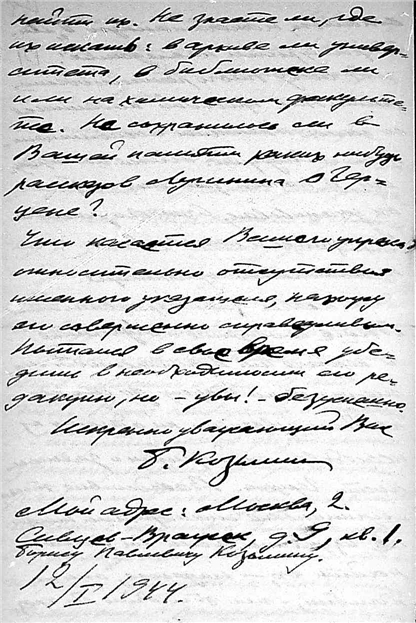 найти их. Не знаете ли, где
их искать: в архиве ли универ-
ситета, в библиотеке ли
или на химическом факульте-
те. Не сохранилось ли в
Вашей памяти каких нибудь
рассказов Лугинина о Гер-
цене?
Что касается Вашего упрека
относительно отсутствия
именного указателя, нахожу
его совершенно справедливым.
Пытался в свое время убе-
дить в необходимости его ре-
дакцию, но – увы! – безуспешно.
Искренно уважающий Вас
Б. Козьмин
Мой адрес: Москва, 2.
Сивцев-Вражек, д. 9, кв. 1.
Борису Павловичу Козьмину.
12/I 1944.